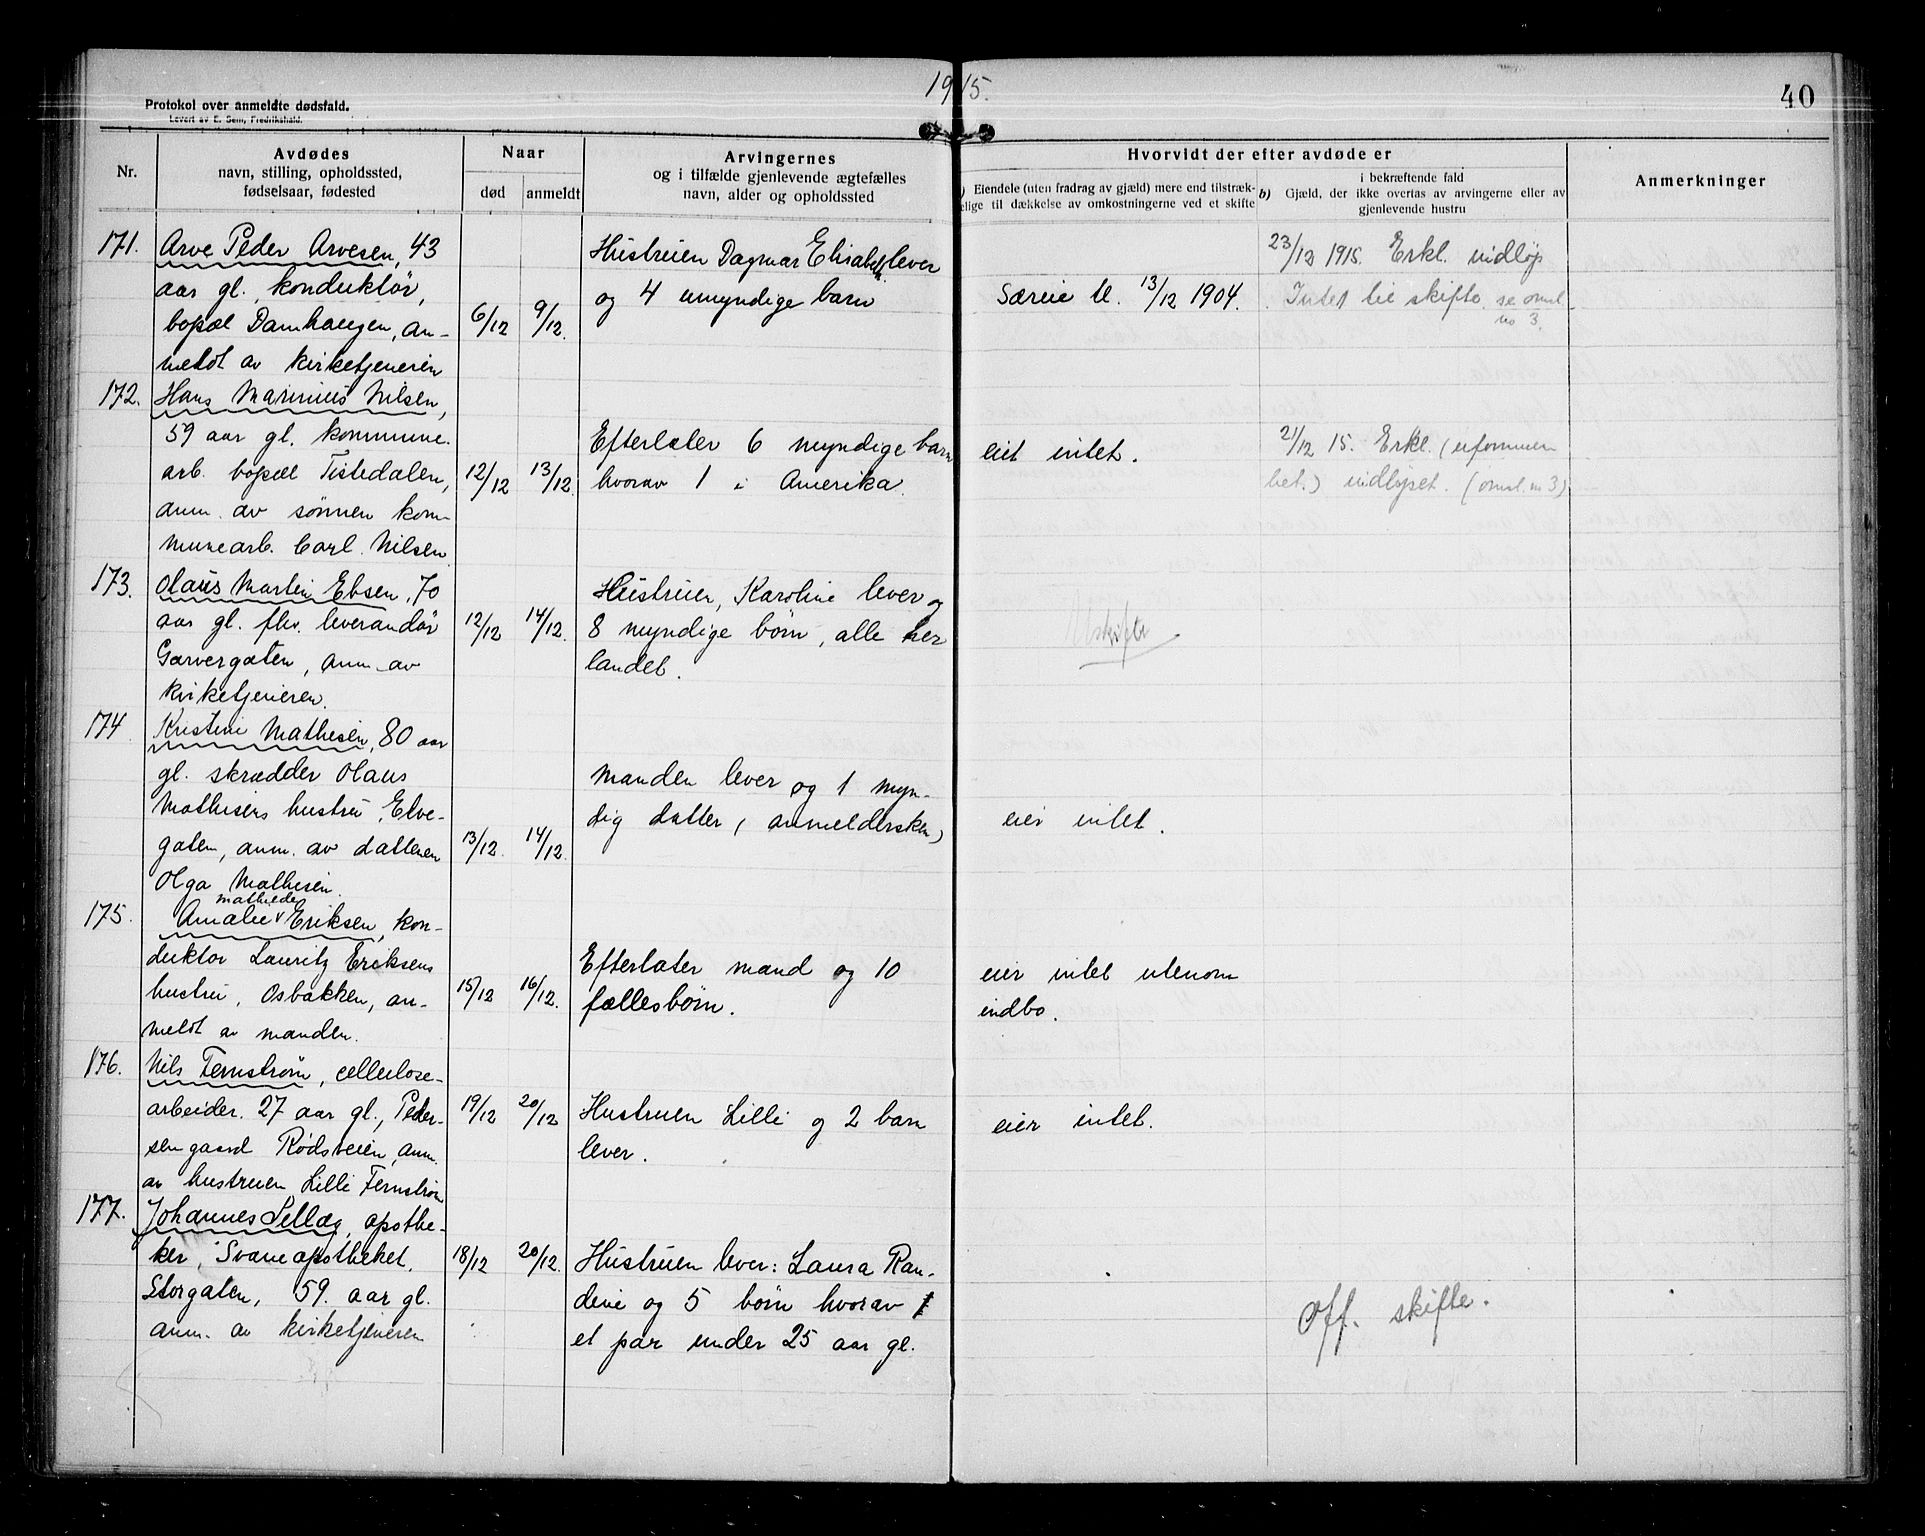 1915.
40
Protokol over anmeldte dødsfald.
Levert av E. Sem, Fredrikshald.
Nr.
Avdødes
navn, stilling, opholdssted,
fødselsaar, fødested
Naar
død
anmeldt
Arvingernes
og i tilfælde gjenlevende ægtefælles
navn, alder og opholdssted
Hvorvidt der efter avdøde er
Eiendele (uten fradrag av gjæld) mere end tilstræk-
elige til dækkelse av omkostningerne ved et skifte
b)
i bekræftende fald
Gjæld, der ikke overtas av arvingerne eller av
gjenlevende hustru
Anmerkninger
171.
Arve Peder Arvesen, 43
aar gl., konduktør,
bopæl Damhaugen, an-
meldt av kirketjeneren
6/12
9/12.
Hustruen Dagmar Elisabeth lever
og 4 umyndige barn
Særeie tl. 13/12 1904.
23/12 1915. Erkl. indløp
Intet til skifte. se omsl.
no 3.
172.
Hans Marinius Nilsen,
59 aar gl. kommune-
arb. bopæl Tistedalen,
anm. av sønnen kom-
munearb. Carl Nilsen
12/12
13/12.
Efterlater 6 myndige barn
hvorav 1 i Amerika.
eiet intet.
21/12 15. Erkl. (uformuen
het.) indlyset. (omsl. n 3)
173.
Olaus Martin Ebsen, 70
aar gl. fhv. leverandør
Garvergaten, anm. av
kirketjeneren.
12/12
14/12.
Hustruen, Karoline lever og
8 myndige børn, alle her
landet.
Uskifte
174
Kristine Mathisen, 80 aar
gl. skrædder Olaus
Mathisens hustru, Elve-
gaten, anm. av datteren
Olga Mathisen.
13/12.
14/12.
Manden lever og 1 myn-
dig datter (anmeldersken)
eier intet.
175.
mathilde
Amalie Eriksen, kon-
duktør Lauritz Eriksens
hustru, Osbakken, an-
meldt av manden.
15/12
16/12.
Efterlater mand og 10
fællesbørn.
eier intet utenom
indbo.
176.
Nils Fernstrøm, cellulose-
arbeider. 27 aar gl., Peder-
sengaard Rødsveien, anm.
av hustruen Lilli Fernstrøm
19/12
20/12
Hustruen Lilli og 2 barn
lever.
eier intet.
177.
Johannes Sellæg, apothe-
ker, Svaneapotheket.
Storgaten, 59 aar gl.
anm. av kirketjeneren
18/12
20/12.
Hustruen lever: Laura Ran-
dine og 5 børn hvorav
et par under 25 aar gl.
Off. skifte.